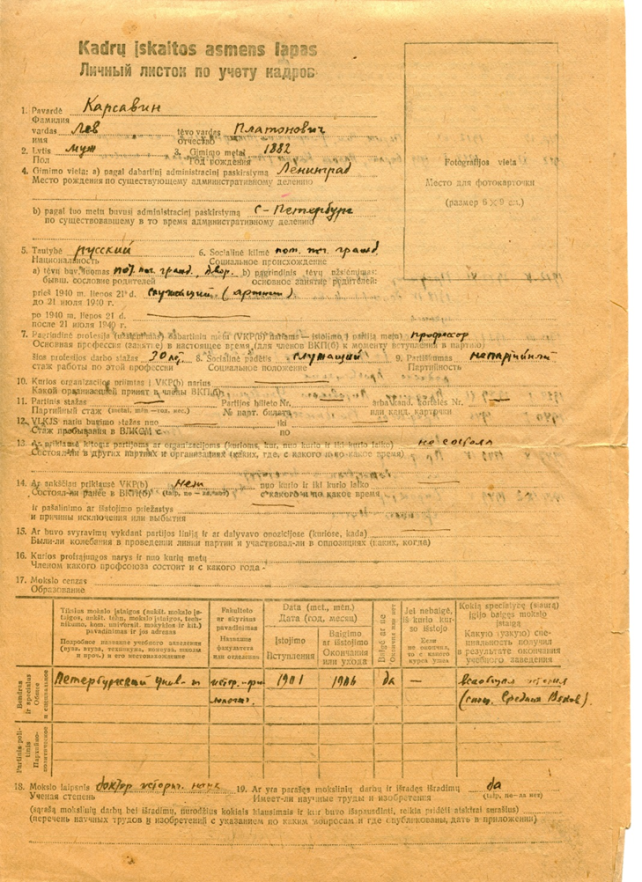 Kadrų įskaitos asmens lapas
Личный листок по учету кадров
1. Pavardė Карсавин
Фамилия
vardas Лев tėvo vardas Платонович
имя отчество
2. Lytis муж 3. Gimimo metai 1882
Пол Год рождения
4. Gimimo vieta: a) pagal dabartinį administracinį paskirstymą Ленинград
Место рождения по существующему административному делению
b) pagal tuo metu buvusį administracinį paskirstymą С-Петербург
по существовавшему в то время административному делению
Fotografijos vieta
Место для фотокарточки
(размер 6 х 9 см.)
5. Tautybė русский 6. Socialinė kilmė пот. поч. гражд.
Национальность Социальное происхождение
a) tėvų buv. luomas пот. поч. гражд. двор. b) pagrindinis tėvų užsiėmimas:
бывш. сословие родителей основное занятие родителей:
prieš 1940 m. liepos 21 d. служащий (артист)
до 21 июля 1940 г.
po 1940 m. liepos 21 d.
после 21 июля 1940 г.
7. Pagrindinė profesija (užsiėmimas) dabartiniu metu (VKP(b) nariams — įstojimo į partiją metu) профессор
Основная профессия (занятие) в настоящее время (для членов ВКП(б) к моменту вступления в партию)
šios profesijos darbo stažas 30 лет 8. Socialinė padėtis служащий 9. Partiškumas непартийный
стаж работы по этой профессии Социальное положение Партийность
10. Kurios organizacijos priimtas į VKP(b) narius
Какой организацией принят в члены ВКП(б)
11. Partinis stažas Partijos bilieto Nr.
Партийный стаж № парт. билета или канд. карточки
12. VLKJS nario buvimo stažas nuo iki
Стаж пребывания в ВЛКСМ с по
13. Ar priklausė kitoms partijoms ar organizacijoms (kurioms, kur, nuo kurio ir iki kurio laiko) не состоял
Состоял-ли в других партиях и организациях (каких, где, с какого и по какое время)
14. Ar anksčiau priklausė VKP(b) нет nuo kurio ir iki kurio laiko
Состоял-ли ранее в ВКП(б) (taip, ne — да, нет) с какого и по какое время
ir pašalinimo ar išstojimo priežastys
и причины исключения или выбытия
15. Ar buvo svyravimų vykdant partijos liniją ir ar dalyvavo opozicijose (kuriose, kada)
Были-ли колебания в проведении линии партии и участвовал-ли в оппозициях (каких, когда)
16. Kurios profsąjungos narys ir nuo kurių metų
Членом какого профсоюза состоит и с какого года
17. Mokslo cenzas
Образование
Tikslus mokslo įstaigos (aukšt. mokslo įstaigos, aukšt. tech. mokyklos, technikumo, kom. universit. mokyklos ir kit.) pavadinimas ir jos adresas
Подробное название учебного заведения (вуза, втуза, техникума, комвуза, школы и проч.) и его местонахождение
Fakulteto ar skyriaus pavadinimas
Название факультета или отделения
Data (met., mėn.)
Дата (год, месяц)
Įstojimo
Вступления
Baigimo ar išstojimo
Окончания или ухода
Baigė ar ne
Окончил или нет
Jei nebaigė, iš kurio kurso išstojo
Если не окончил, то с какого курса ушел
Kokią specialybę (siaurą) įgijo baigęs mokslo įstaigą
Какую (узкую) специальность получил в результате окончания учебного заведения
Bendras ir specialus
Общее и специальное
Петербургский унив-т истор.-филологич. 1901 1906 да — Всеобщая история (спец. Средних Веков).
Partinis-politinis
Партийно-политическое
18. Mokslo laipsnis доктор историч. наук 19. Ar yra parašęs mokslinių darbų ir išradęs išradimų да
Ученая степень Имеет-ли научные труды и изобретения (taip, ne — да, нет)
(sąrašą mokslinių darbų bei išradimų, nurodžius kokiais klausimais ir kur buvo išspausdinti, reikia pridėti atskirai surašius)
(перечень научных трудов и изобретений с указанием по каким вопросам и где опубликованы, дать в приложении)